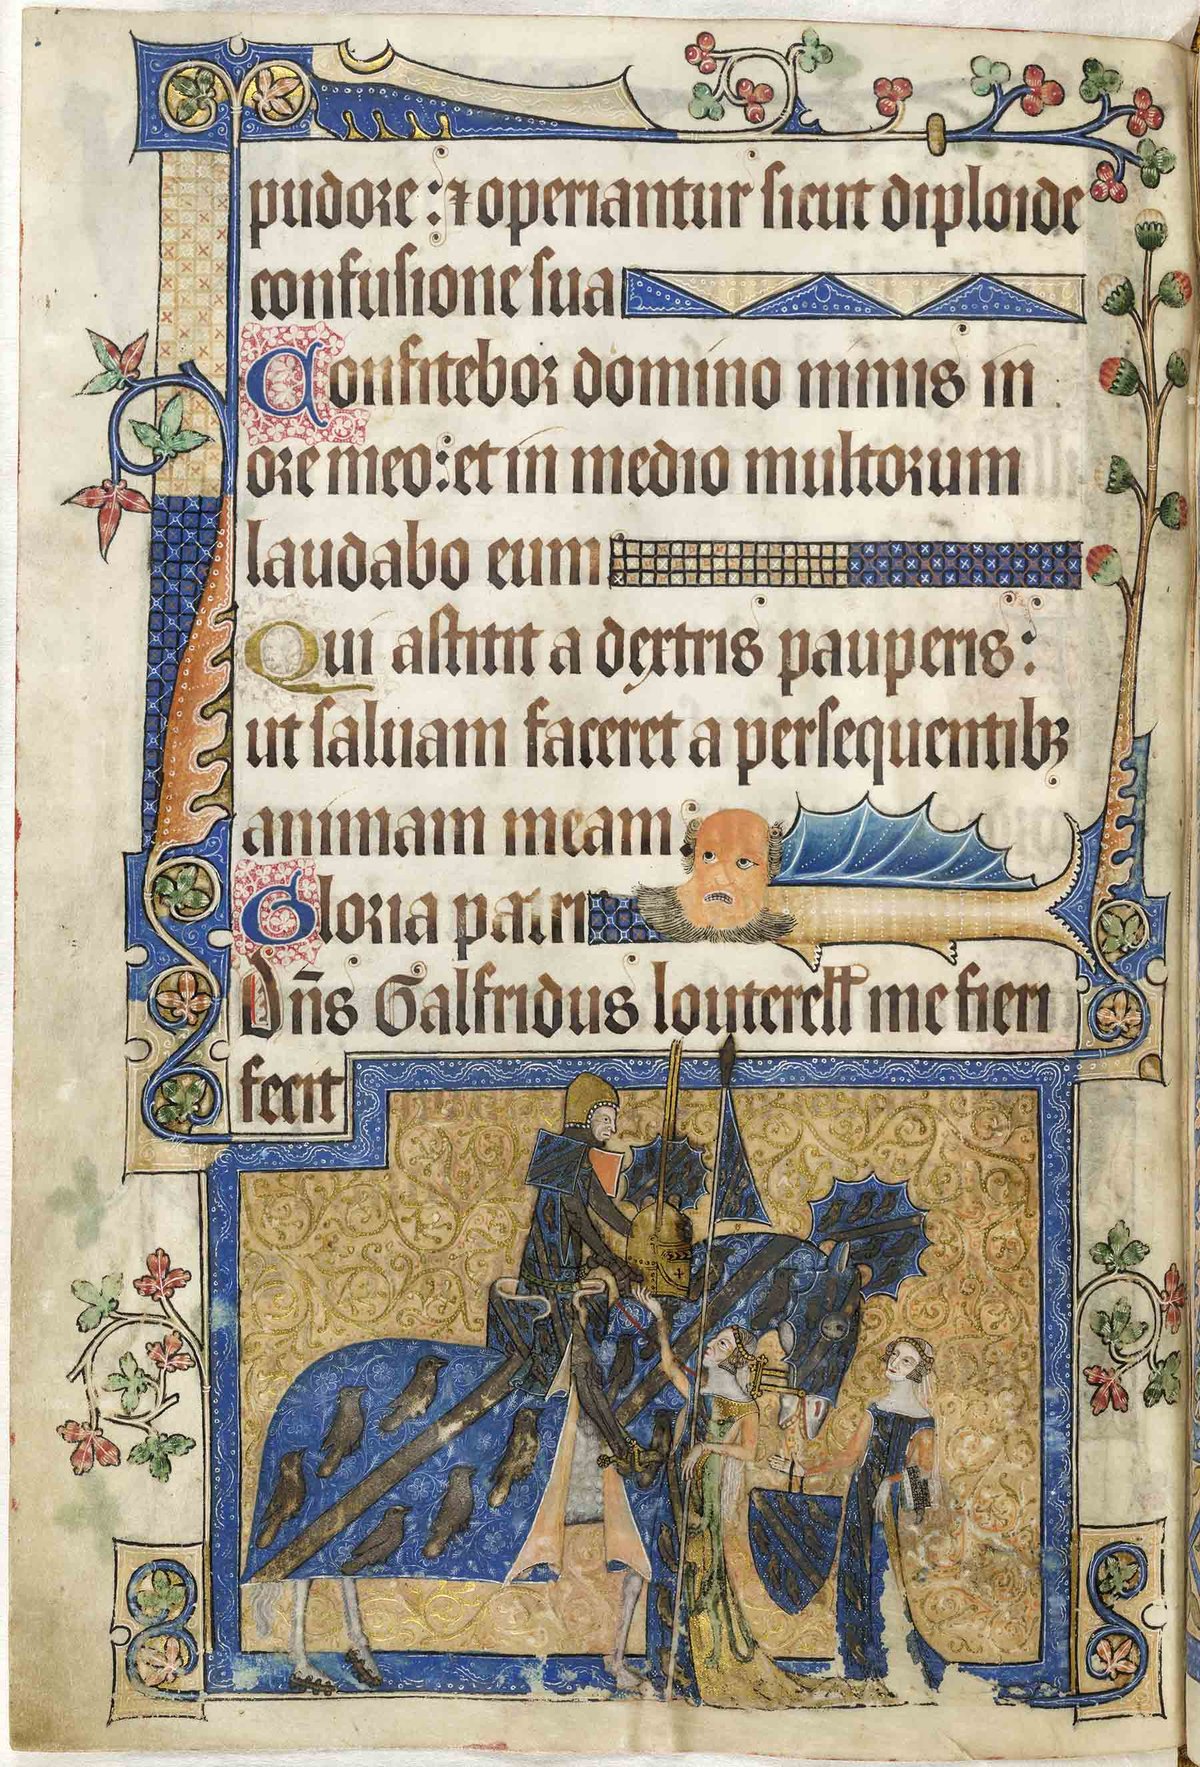 pudore : ⁊ operiantur sicut diploide
confusione sua
Confitebor domino nimis in
ore meo : et in medio multorum
laudabo eum
Qui astitit a dextris pauperis :
ut saluam faceret a persequentibꝫ
animam meam.
Gloria patri
Dn̄s Galfridus louterell me fieri
fecit